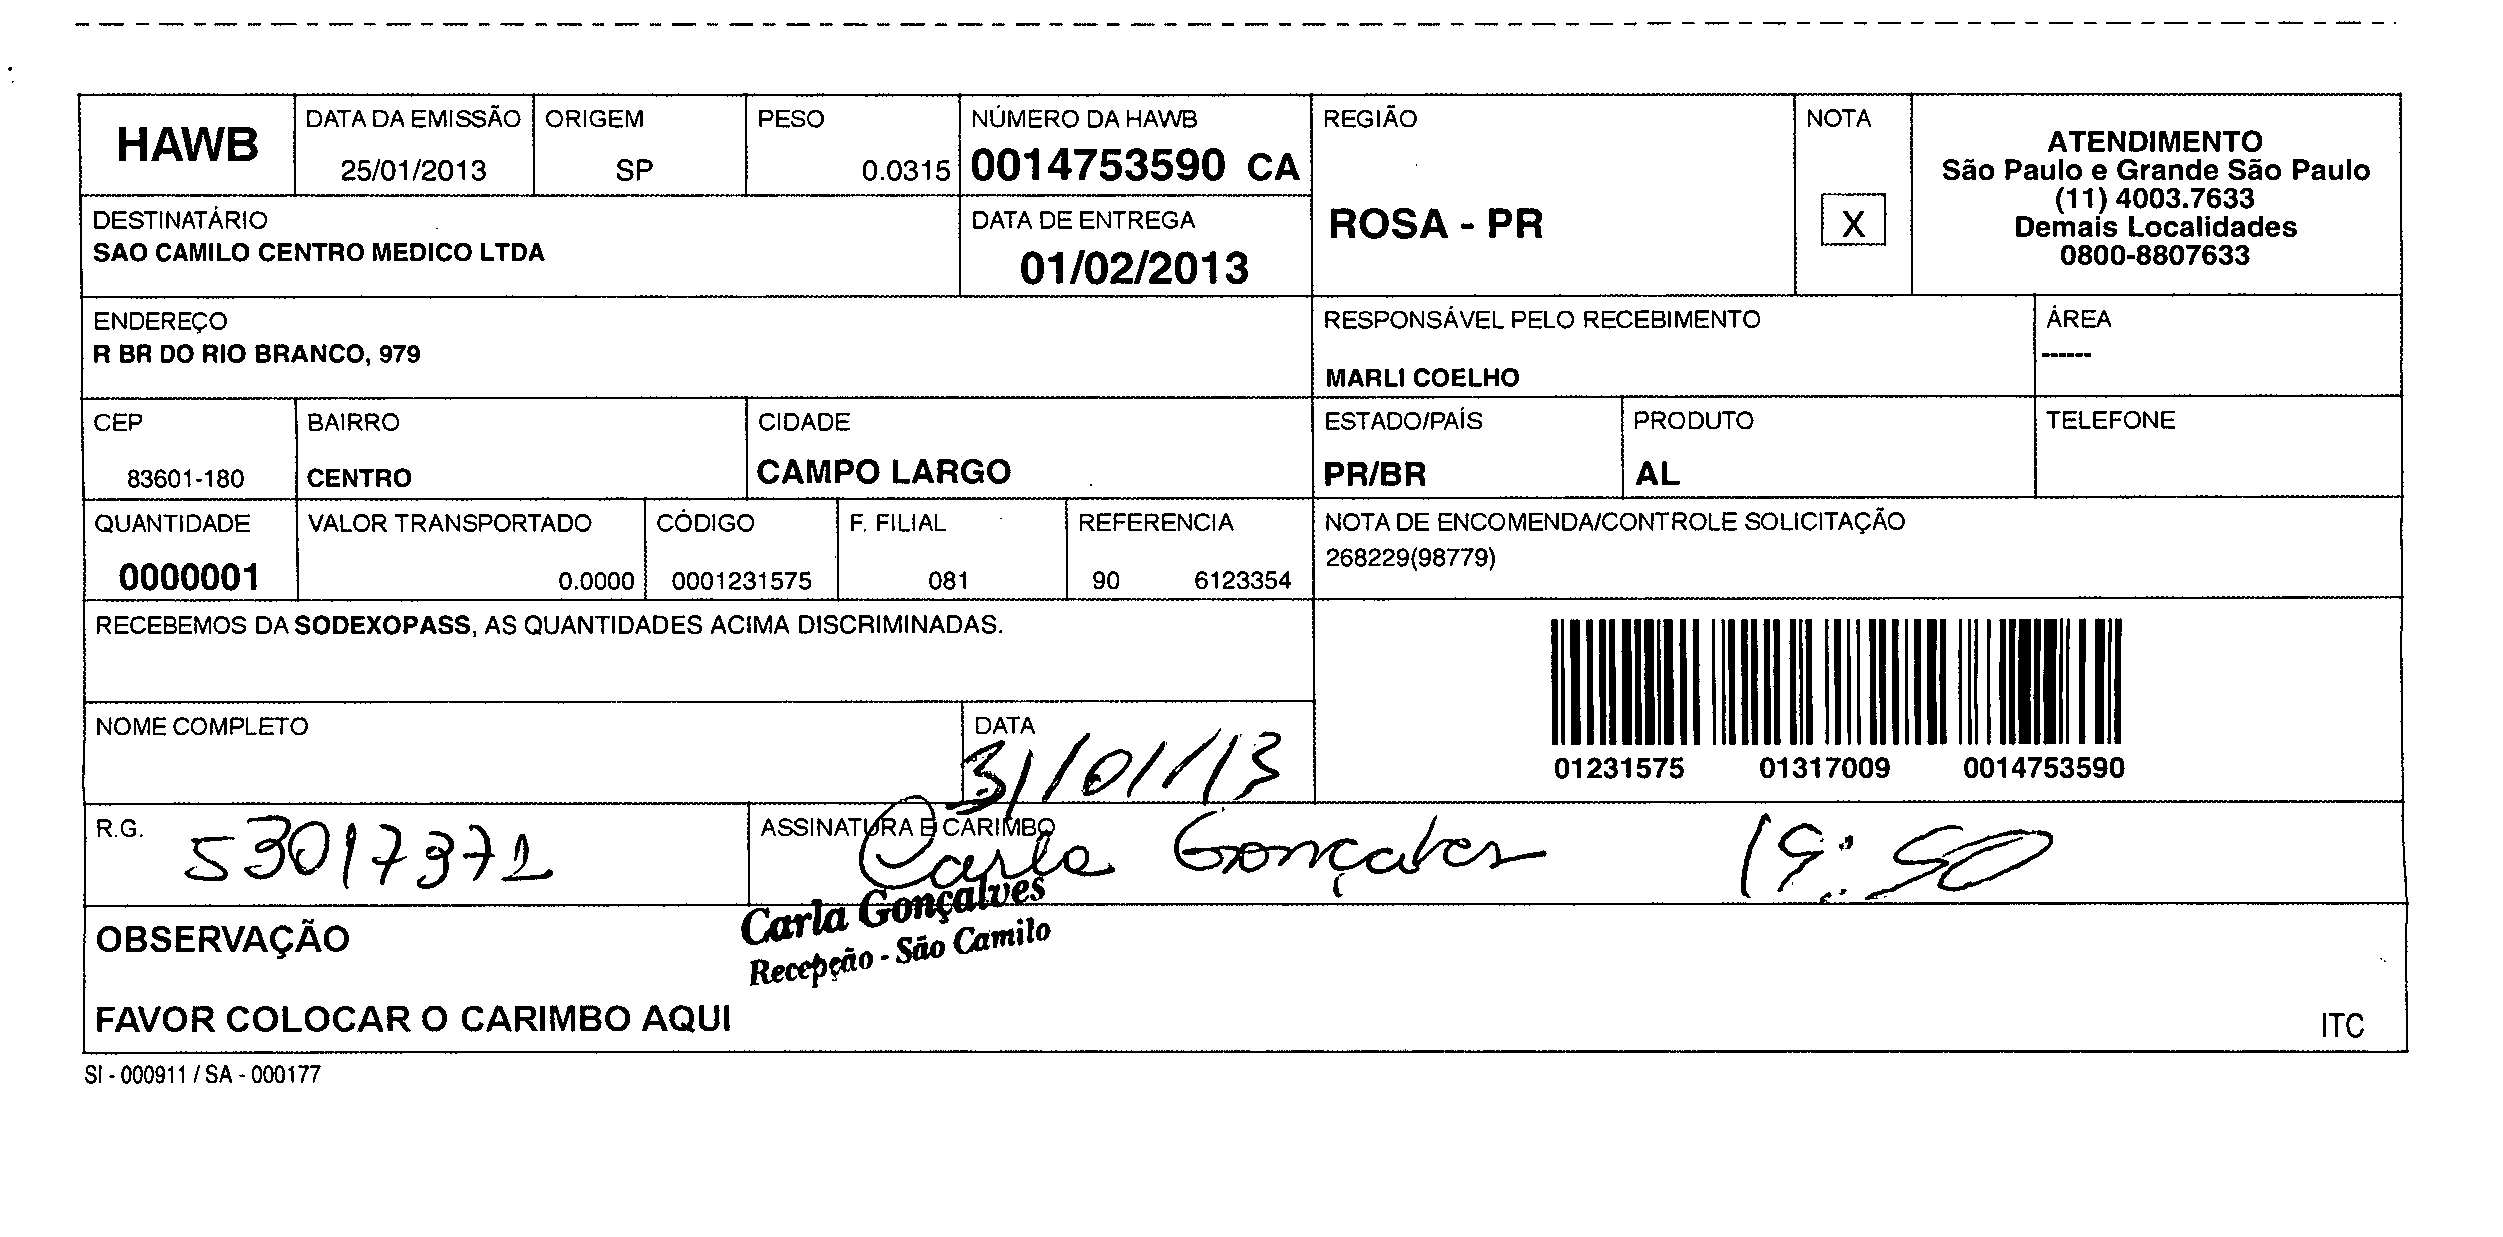 HAWB
DATA DA EMISSÃO
25/01/2013
ORIGEM
SP
PESO
0.0315
NÚMERO DA HAWB
0014753590 CA
REGIÃO
ROSA - PR
NOTA
X
ATENDIMENTO
São Paulo e Grande São Paulo
(11) 4003.7633
Demais Localidades
0800-8807633
DESTINATÁRIO
SAO CAMILO CENTRO MEDICO LTDA
DATA DE ENTREGA
01/02/2013
ENDEREÇO
R BR DO RIO BRANCO, 979
RESPONSÁVEL PELO RECEBIMENTO
MARLI COELHO
ÁREA
------
CEP
83601-180
BAIRRO
CENTRO
CIDADE
CAMPO LARGO
ESTADO/PAÍS
PR/BR
PRODUTO
AL
TELEFONE
QUANTIDADE
0000001
VALOR TRANSPORTADO
0.0000
CÓDIGO
0001231575
F. FILIAL
081
REFERENCIA
90 6123354
NOTA DE ENCOMENDA/CONTROLE SOLICITAÇÃO
268229(98779)
RECEBEMOS DA SODEXOPASS, AS QUANTIDADES ACIMA DISCRIMINADAS.
01231575 01317009 0014753590
NOME COMPLETO
DATA
31/01/13
R.G.
53017371
ASSINATURA E CARIMBO
Carla Gonçalves
Carla Gonçalves
Recepção - São Camilo
OBSERVAÇÃO
FAVOR COLOCAR O CARIMBO AQUI
ITC
SI - 000911 / SA - 000177